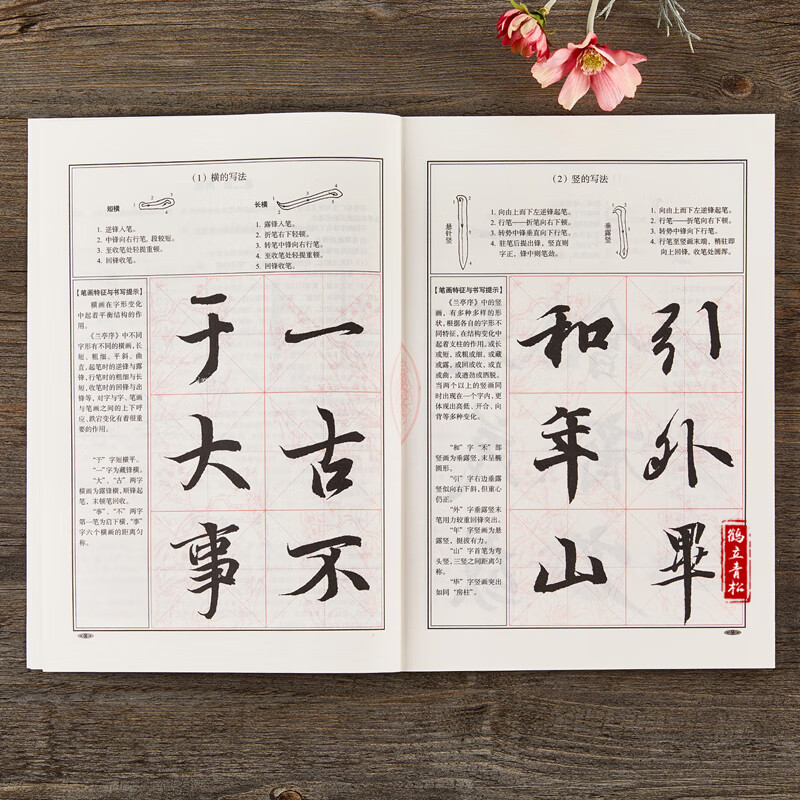 （1）横的写法
短横
1 2 3 4
1. 逆锋入笔。
2. 中锋向右行笔，段较短。
3. 至收笔处轻提重顿。
4. 回锋收笔。
长横
1 2 3 4 5
1. 露锋入笔。
2. 折笔右下轻顿。
3. 转笔中锋向右行笔。
4. 至收笔处轻提重顿。
5. 回锋收笔。
【笔画特征与书写提示】
横画在字形变化
中起着平衡结构的作
用。
《兰亭序》中不同
字形有不同的横画，长
短、粗细、平斜、曲
直，起笔时的逆锋与露
锋，行笔时的粗细与长
短，收笔时的回锋与出
锋等，对字与字、笔画
与笔画之间的上下呼
应、跌宕变化有着很重
要的作用。
“于”字短横平。
“一”字为藏锋横。
“大”、“古”两字
横画为露锋横，顺锋起
笔，末顿笔回收。
“事”、“不”两字
第一笔为启下横，“事”
字六个横画的距离匀
称。
于 一
大 古
事 不
（2）竖的写法
悬针竖
1. 向由上而下左逆锋起笔。
2. 行笔——折笔向右下顿。
3. 转势中锋垂直向下行笔。
4. 驻笔后提出锋，竖直则
字正，锋中则笔劲。
垂露竖
1. 向由上而下左逆锋起笔。
2. 行笔——折笔向右下顿。
3. 转势中锋向下行笔。
4. 行笔至竖画末端，稍驻即
向上回锋，收笔处圆浑。
【笔画特征与书写提示】
《兰亭序》中的竖
画，有多种多样的形
状，根据各自的字形不
同特征，在结构变化中
起着支柱的作用。或长
或短，或粗或细，或藏
或露，或回或收，或直
或曲，或遒劲或洒脱。
当两个以上的竖画同
时出现在一个字内，更
体现出高低、开合、向
背等多种变化。
“和”字“禾”部
竖画为垂露竖，末呈椭
圆形。
“引”字右边垂露
竖似向右下斜，但重心
仍正。
“外”字垂露竖末
笔用力较重回锋突出。
“年”字竖画为悬
露竖，挺拔有力。
“山”字首笔为弯
头竖，三竖之间距离匀
称。
“毕”字竖画突出
如同“房柱”。
和 引
年 外
山 畢
鹤立青松